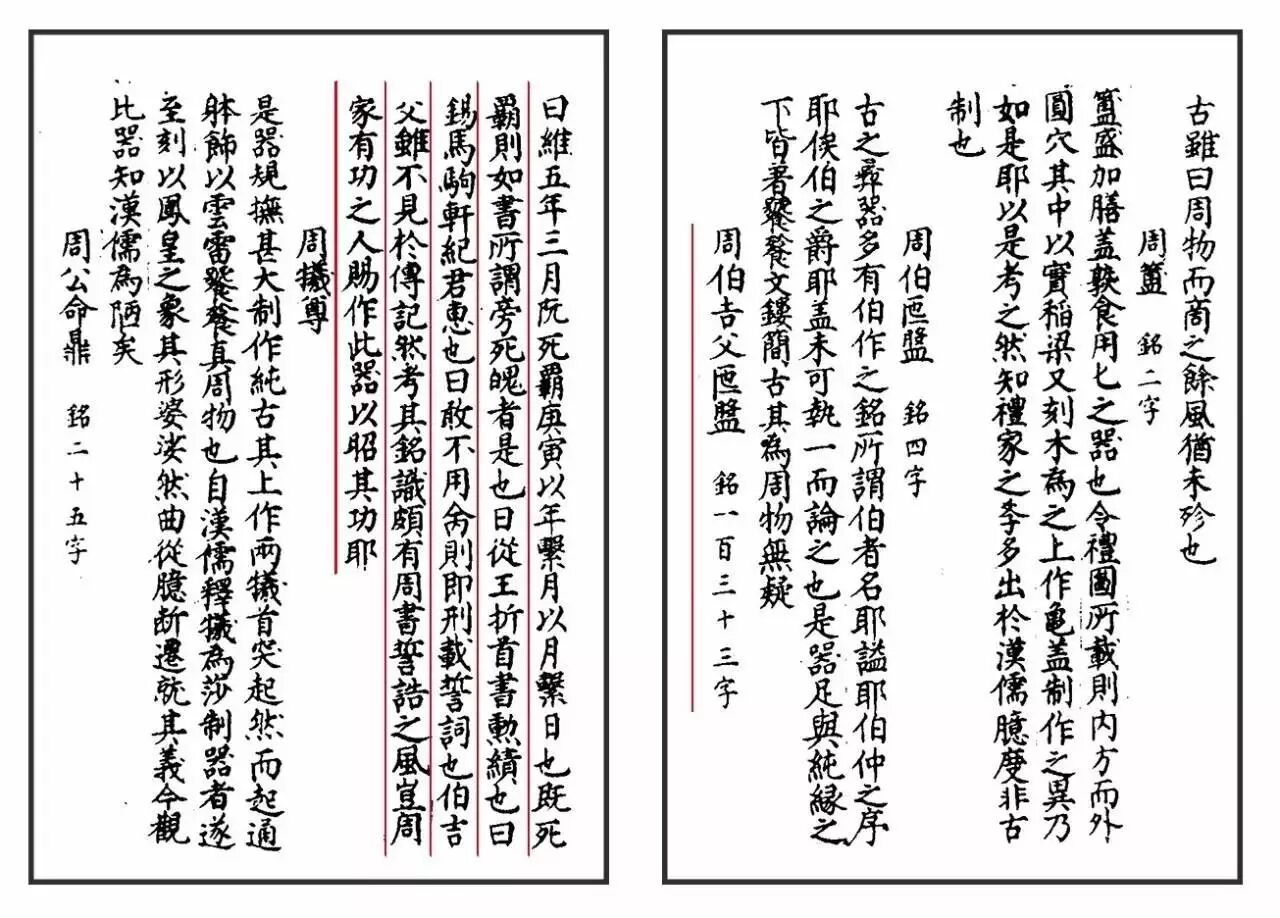 古雖曰周物而商之餘風猶未殄也
周簠 銘二字
簠盛加膳盖簋食用匕之器也令禮圖所載則内方而外
圓穴其中以實稻梁又刻木為之上作龜盖制作之異乃
如是耶以是考之然知禮家之學多出於漢儒臆度非古
制也
周伯匜盬 銘四字
古之彛器多有伯作之銘所謂伯者名耶謚耶伯仲之序
耶俟伯之爵耶盖未可執一而論之也是器足與純緣之
下皆著饕餮文鏤簡古其為周物無疑
周伯吉父匜盬 銘一百三十三字
曰維五年三月既死霸庚寅以年繫月以月繫日也既死
霸則如書所謂旁死魄者是也曰從王折首書勲績也曰
錫馬駒軒紀君恵也曰敢不用命則即刑載誓詞也伯吉
父雖不見於傳記然考其銘識頗有周書誓誥之風豈周
家有功之人賜作此器以昭其功耶
周犧尊
是器規撫甚大制作純古其上作兩犧首突起然而起通
躰飾以雲雷饕餮真周物也自漢儒釋犧為莎制器者遂
至刻以鳳皇之象其形婆娑然曲從臆断遷就其義今觀
比器知漢儒為陋矣
周公命鼎 銘二十五字